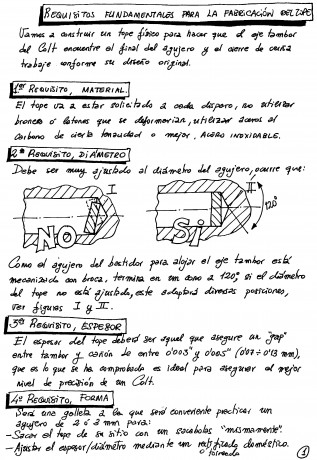 REQUISITOS FUNDAMENTALES PARA LA FABRICACIÓN DEL TOPE
Vamos a construir un tope físico para hacer que el eje tambor
del Colt encuentre el final del agujero y el cierre de cuña
trabaje conforme su diseño original.
1er REQUISITO, MATERIAL.
El tope va a estar solicitado a cada disparo, no utilizar
bronces o latones que se deformarían, utilizar aceros al
carbono de cierta tenacidad o mejor, ACERO INOXIDABLE.
2º REQUISITO, DIÁMETRO
Debe ser muy ajustado al diámetro del agujero, ocurre que:
I
II
120º
NO
SÍ
Como el agujero del bastidor para alojar el eje tambor está
mecanizado con broca, termina en un cono a 120º, si el diámetro
del tope no está ajustado, este adoptará diversas posiciones,
ver figuras I y II.
3er REQUISITO, ESPESOR
El espesor del tope deberá ser aquel que asegure un "gap"
entre tambor y cañón de entre 0'003" y 0'005" (0'07 ÷ 0'13 mm),
que es lo que se ha comprobado es ideal para asegurar el mejor
nivel de precisión de un Colt.
4º REQUISITO, FORMA
Será una galleta a la que será conveniente practicar un
agujero de 2 ó 3 mm para:
-Sacar el tope de su sitio con un sacabolas "mismamente".
-Ajustar el espesor/diámetro mediante un rectificado doméstico.
o torneado
1